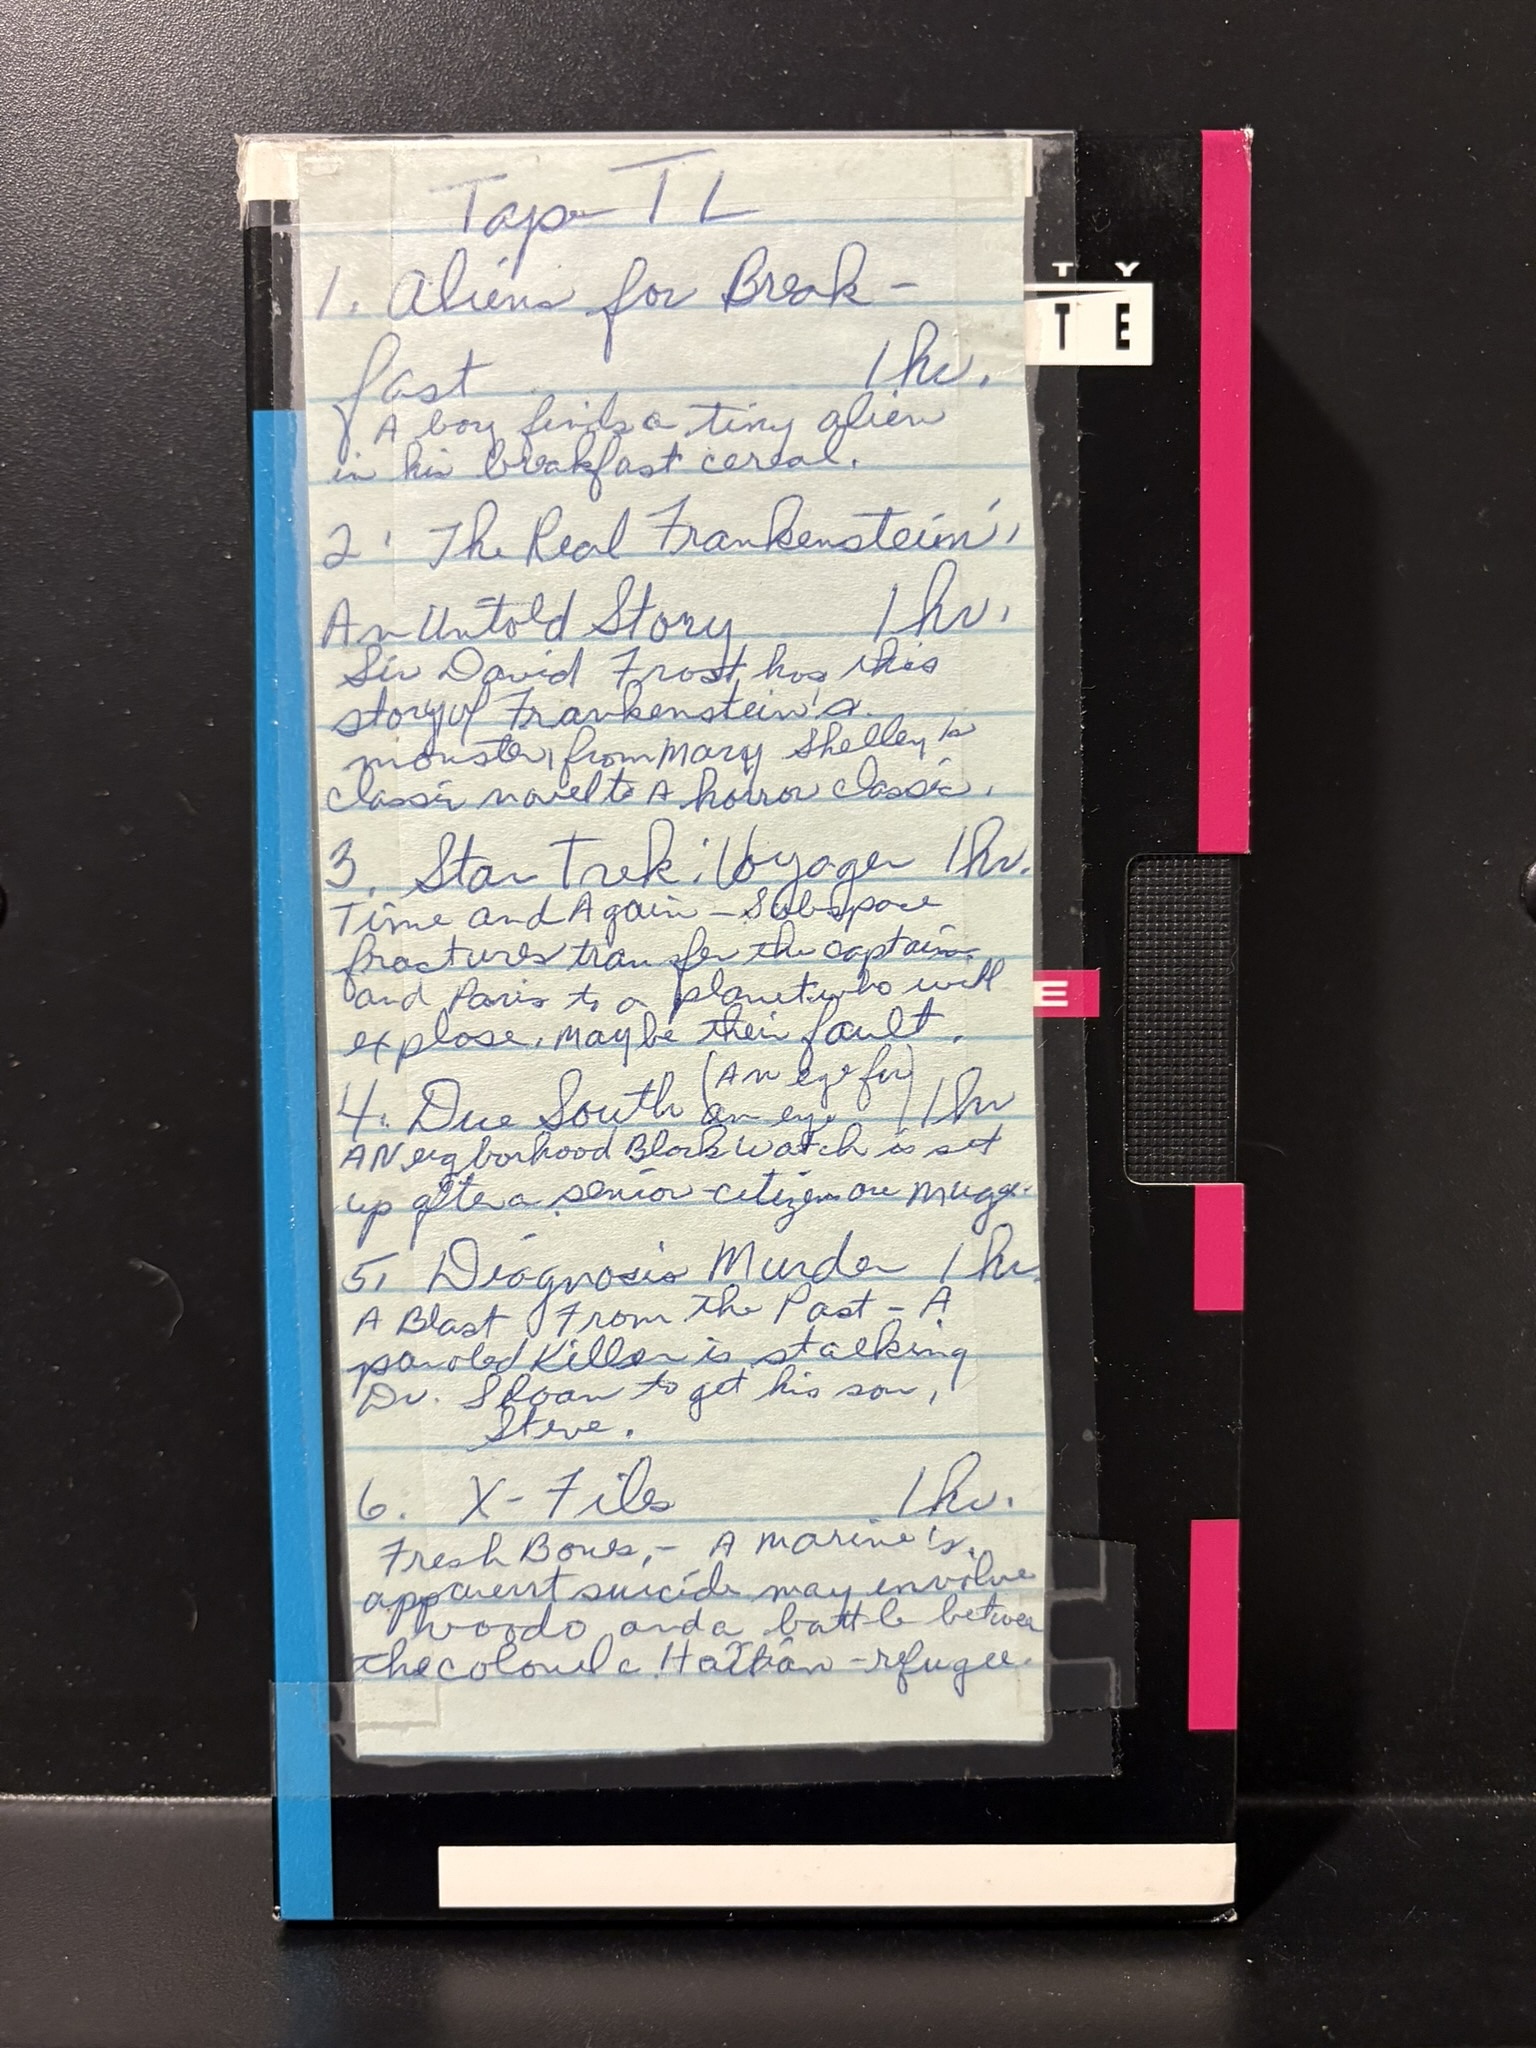 Tape TL
1. Aliens for Break-
fast 1 hr.
A boy finds a tiny alien
in his breakfast cereal.
2. The Real Frankenstein,
An Untold Story 1 hr.
Sir David Frost has this
story of Frankenstein's
monster, from Mary Shelley's
classic novel to A horror classic.
3. Star Trek: Voyager 1 hr.
Time and Again - Subspace
fractures transfer the captain
and Paris to a planet who will
explose. Maybe their fault.
4. Due South (An eye for an eye) 1 hr
A Neigborhood Block Watch is set
up after a senior-citizen are mugge.
5. Diagnosis Murder 1 hr.
A Blast From the Past - A
paroled Killer is stalking
Dr. Sloan to get his son,
Steve.
6. X-Files 1 hr.
Fresh Bones, - A marine's
apparent suicide may involve
voodo and a battle between
the colonel a Haitian-refugee.
T Y
T E
E